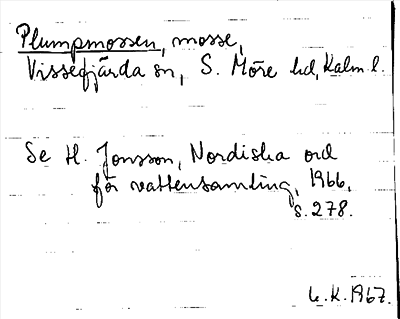 Plumpmossen, mosse,
Vissefjärda sn, S. Möre hd, Kalm l.
Se H. Jonsson, Nordiska ord
för vattensamling, 1966,
s. 278.
L.K. 1967.